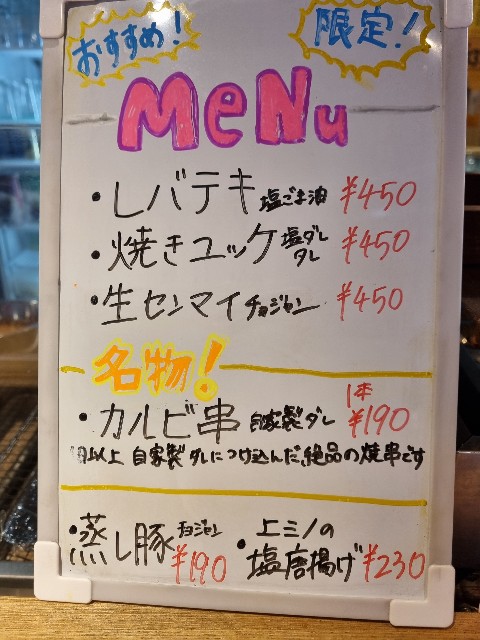 おすすめ! 限定!
MeNu
・レバテキ 塩ごま油 ¥450
・焼きユッケ 塩ダレ タレ ¥450
・生センマイ チョジャン ¥450
名物!
・カルビ串 自家製ダレ 1本 ¥190
以上 自家製ダレにつけ込んだ、絶品の焼串です
・蒸し豚 チョジャン ¥190 ・上ミノの塩唐揚げ ¥230